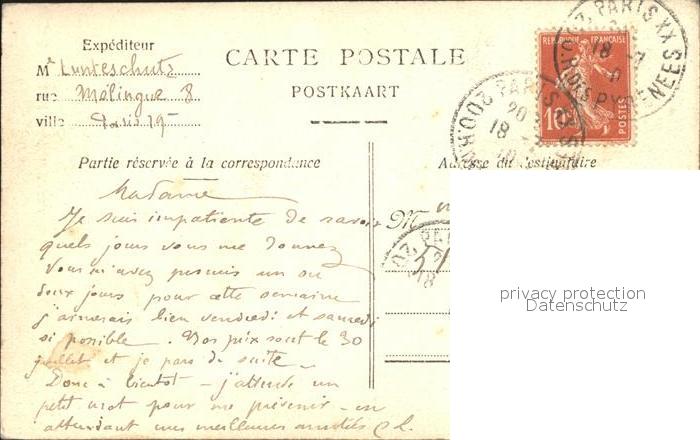 Expéditeur
Mᵉ Lunteschutz
rue Mélingue 8
ville Paris 19ᵉ
CARTE POSTALE
POSTKAART
REPUBLIQUE FRANÇAISE
10
POSTES
PARIS XX
R. DES PYRENEES
18
PARIS
20
18
Partie réservée à la correspondance
Adresse du destinataire
Madame
Je suis impatiente de savoir
quels jours vous me donnez
Vous m'avez promis un ou
deux jours pour cette semaine
j'aimerais bien vendredi et samedi
si possible. Nos prix sont le 30
juillet et je pars de suite
Donc à bientôt – j'attends un
petit mot pour me prévenir – en
attendant mes meilleures amitiés
M
PA
18
privacy protection
Datenschutz